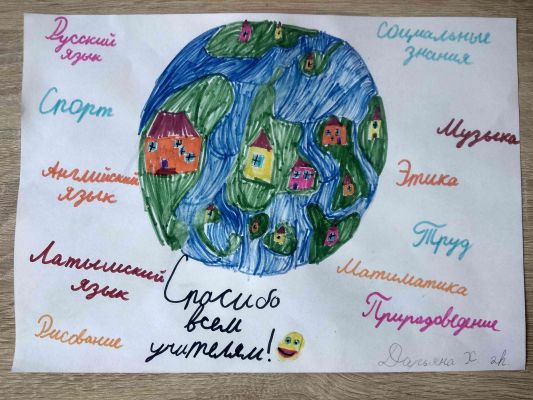 Русский
язык
Спорт
Английский
язык
Латышский
язык
Рисование
Социальные
знания
Музыка
Этика
Труд
Матиматика
Природоведение
Спасибо
всем
учителям!
Х.